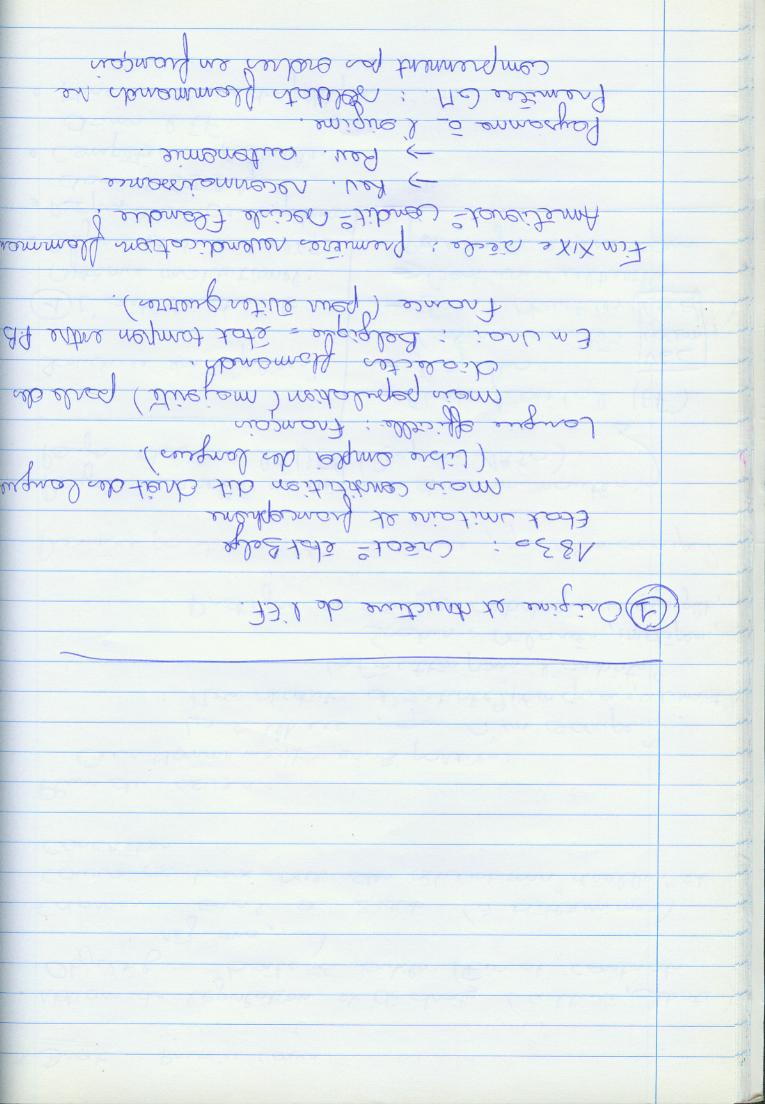 1 Origine et structure de l'EF.
1830 : Créat° état Belge
Etat unitaire et francophone
mais constitution dit droit des langue
(Libre emploi des langues).
Langue officielle : Français
mais population (majorité) parle des
dialectes flamands.
En vrai : Belgique = état tampon entre P.B
France (pour éviter guerres).
Fin XIXe siècle : premières revendication flamman
Améliorat° condit° sociale Flandre :
→ Rev. reconnaissance
→ Rev. autonomie.
Paysanne à l'origine.
Première GM. : soldats flammands ne
comprennent pas ordres en français